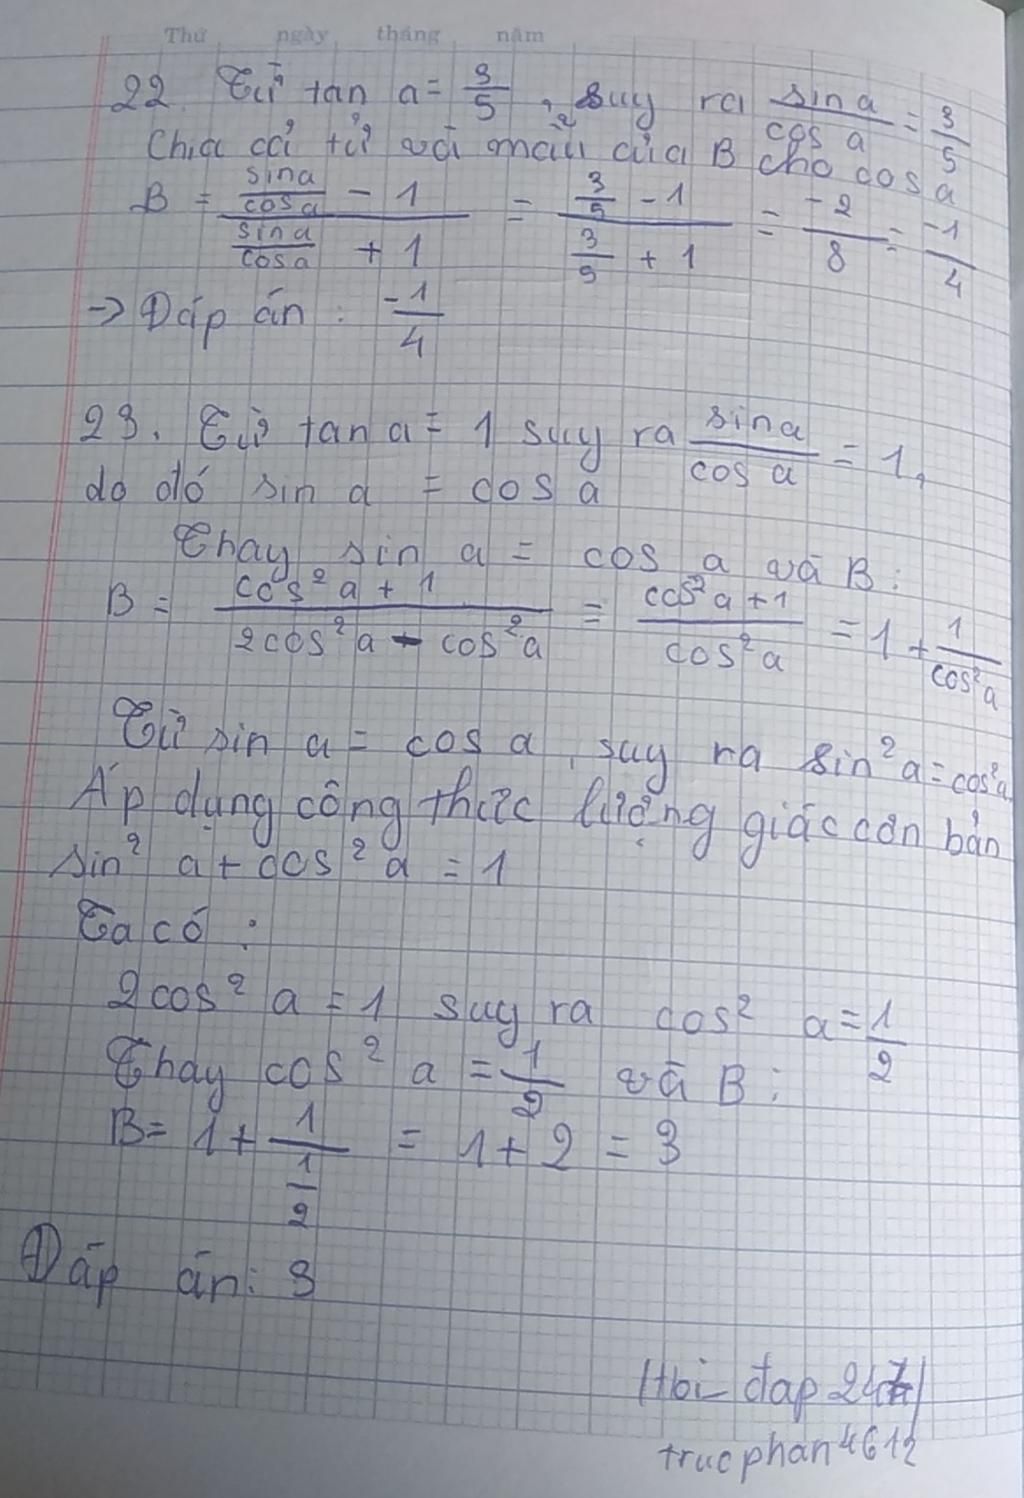 Thứ ngày tháng năm
22. Từ tan a = 3/5, suy ra sin a / cos a = 3/5
Chia cả tử và mẫu của B cho cos a
B = (sin a / cos a - 1) / (sin a / cos a + 1) = (3/5 - 1) / (3/5 + 1) = -2/8 = -1/4
-> Đáp án: -1/4
23. Từ tan a = 1 suy ra sin a / cos a = 1,
do đó sin a = cos a
Thay sin a = cos a và B:
B = (cos² a + 1) / (2cos² a - cos² a) = (cos² a + 1) / cos² a = 1 + 1/cos² a
Từ sin a = cos a, suy ra sin² a = cos² a
Áp dụng công thức lượng giác cơn bản
sin² a + cos² a = 1
Ta có:
2cos² a = 1 suy ra cos² a = 1/2
Thay cos² a = 1/2 và B:
B = 1 + 1/(1/2) = 1 + 2 = 3
Đáp án: 3
Hoi đap 247
trucphan4612